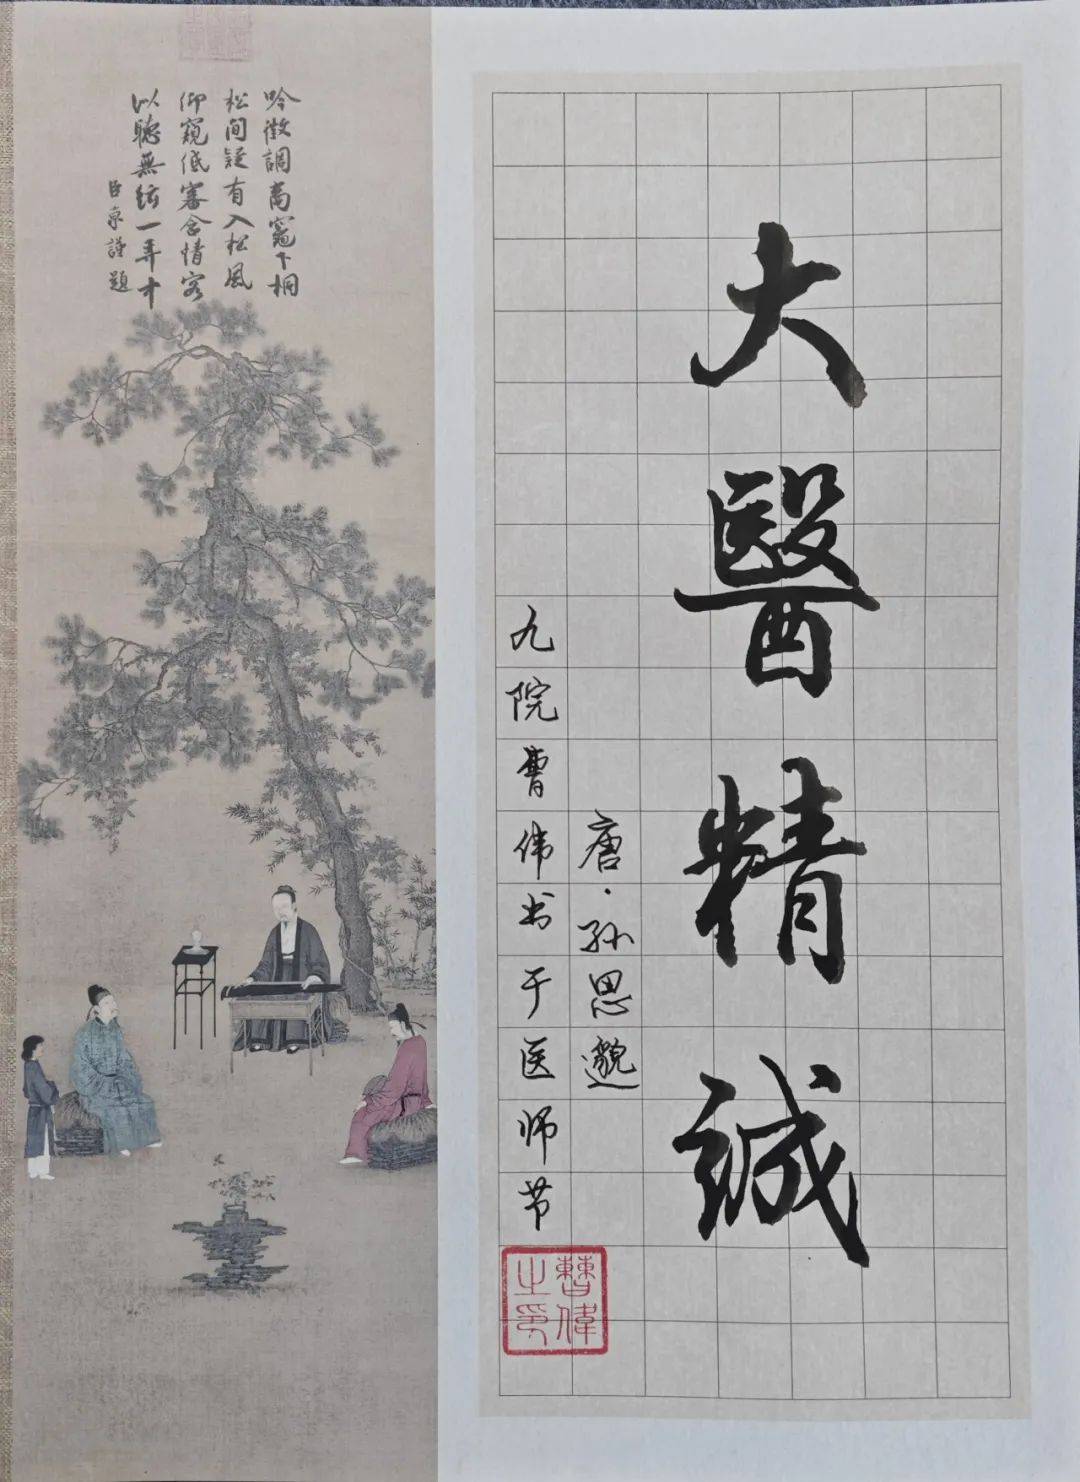 大醫精誠
唐·孙思邈
九院曹伟书于医师节
曹偉之印
吟徵調商竈下桐
松間疑有入松風
仰窺低審含情客
以聽無絃一弄中
臣京謹題